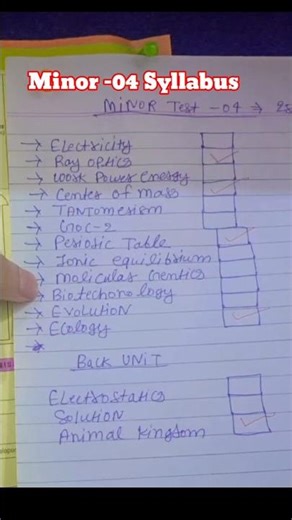 Minor -04 Syllabus
MINOR Test - 04 →
→ Electricity
→ Ray optics
→ work Power energy
→ Center of mass
→ TAUTOmerism
→ Goc-2
→ Periodic Table
→ Ionic equilibrium
→ Moliculas Genetics
→ Biotechonology
→ Evolution
→ Ecology
→
Back UNIT
Electrostatics
Solution
Animal kingdom